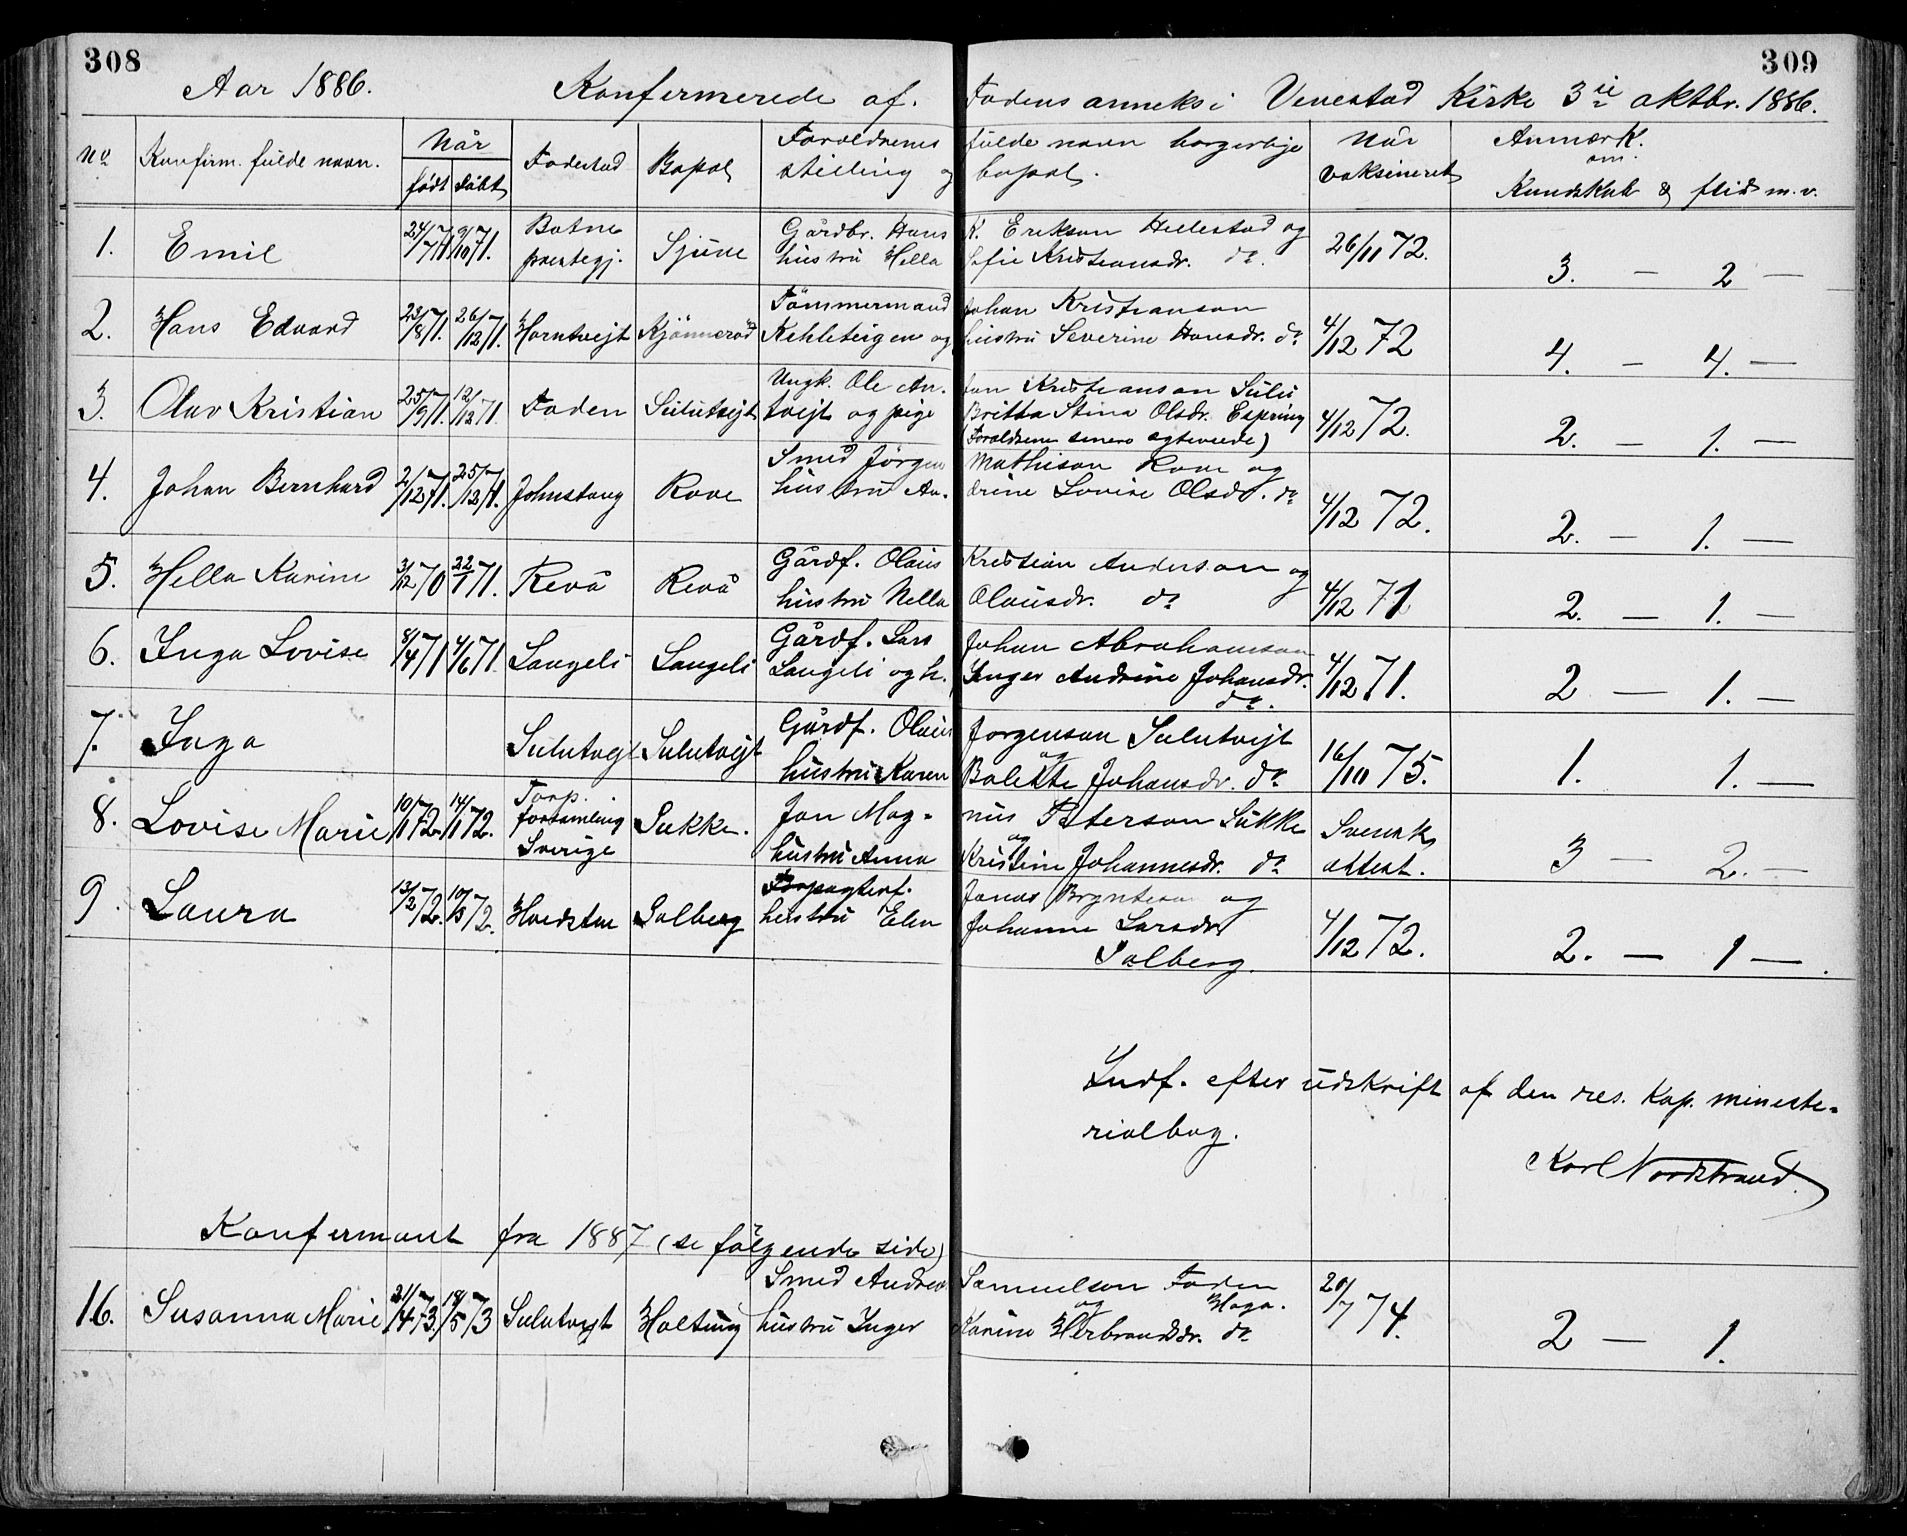 308
309
Aar 1886. Konfermerede af. Fodens anneks i Venestad Kirke 3ie oktbr. 1886.
No Konfirm. fulde navn. Når født døbt Fødestad Bopæl Foræld­renes stilling og fulde navn borgerlige bopæl. Når vaksineret Anmærk. om Kundskab & flid m. v.
1. Emil 24/7 71 9/10 71. Botne præstegj. Sjue Gårdbr. Hans
K. Erikson Hillestad og
hustru Hella Sofie Kristiansdr. do. 26/11 72. 3. — 2 —
2. Hans Edvard 23/8 71. 26/12 71. Horntvejt Kjønnerød Tømmermand Johan Kristianson
Kehleteigen og hustru Severine Hansdr. do 4/12 72 4. — 4. —
3. Olav Kristian 25/9 71. 12/12 71 Foden Sulutvejt Ungk. Ole An. Jan Kristianson Sulu
tvejt og pige Britta Stina Olsdr. Espring
(Forældrene senere ægteviede) 4/12 72. 2. — 1. —
4. Johan Bernhard 2/12 71. 25/12 71. Johnstang Rove Smed Jørgen Mathison Rove og
hustru An. drine Lovise Olsd. do 4/12 72. 2. — 1. —
5. Hella Karine 3/12 70 22/1 71. Revå Revå Gårdf. Olaus Kristian Anderson og
hustru Nella Olausdr. do 4/12 71 2. — 1. —
6. Inga Lovise 8/4 71 4/6 71. Langeli Langeli Gårdf. Lars Johan Abrahamson
Langeli og h. Inger Andrine Johansdr. do. 4/12 71. 2 — 1. —
7. Inga Sulutvejt Sulutvejt Gårdf. Olaus Jorgenson Sulutvejt
hustru Karen og Bolette Johansdr. do 16/10 75. 1. 1. —
8. Lovise Marie 10/1 72. 14/1 72. Torp. forsamling Sverige Sukke. Jon Mag- nus Peterson Sukke
hustru Anna og Kristine Johannesdr. do Svensk attest. 3 — 2. —
9. Laura 13/2 72. 10/5 72. Hvidsten Solberg Forpagterf. Jonas Brynteson og
hustru Elen Johanne Larsdr Solberg. 4/12 72. 2. — 1 —.
Indf. efter udskrift af den res. Kap. ministe-
rialbog.
Karl Nordstrand.
Konfermant fra 1887 (se følgende side)
16. Susanna Marie 21/4 73. 18/5 73 Sulutvejt Holtung Smed Andreas Samuelson Foden Haga.
hustru Inger og Karine Herbrandsdr. do 20/7 74. 2 — 1.